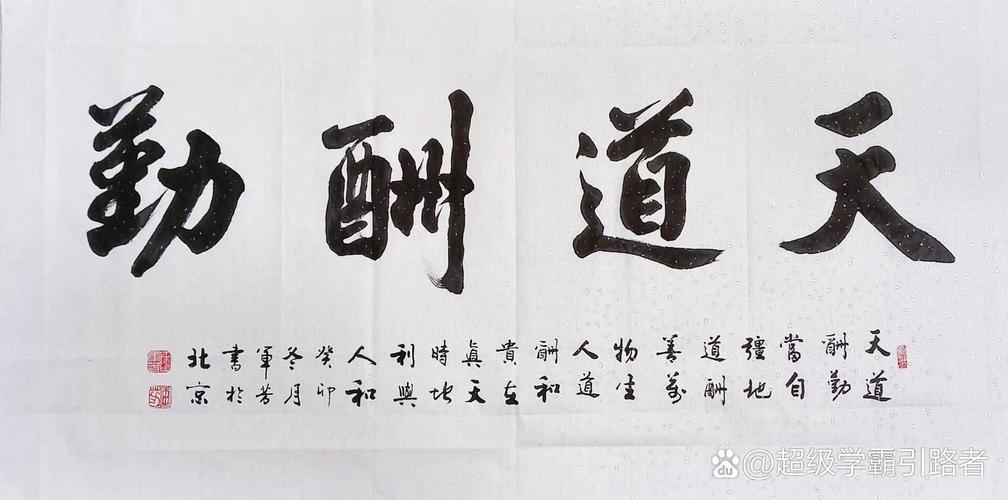 天道酬勤
天道
酬勤
當自
彊地
道酬
善萬
物生
人道
酬和
貴在
眞天
時地
利與
人和
癸卯
冬月
軍芳
書於
北京
du @超级学霸引路者